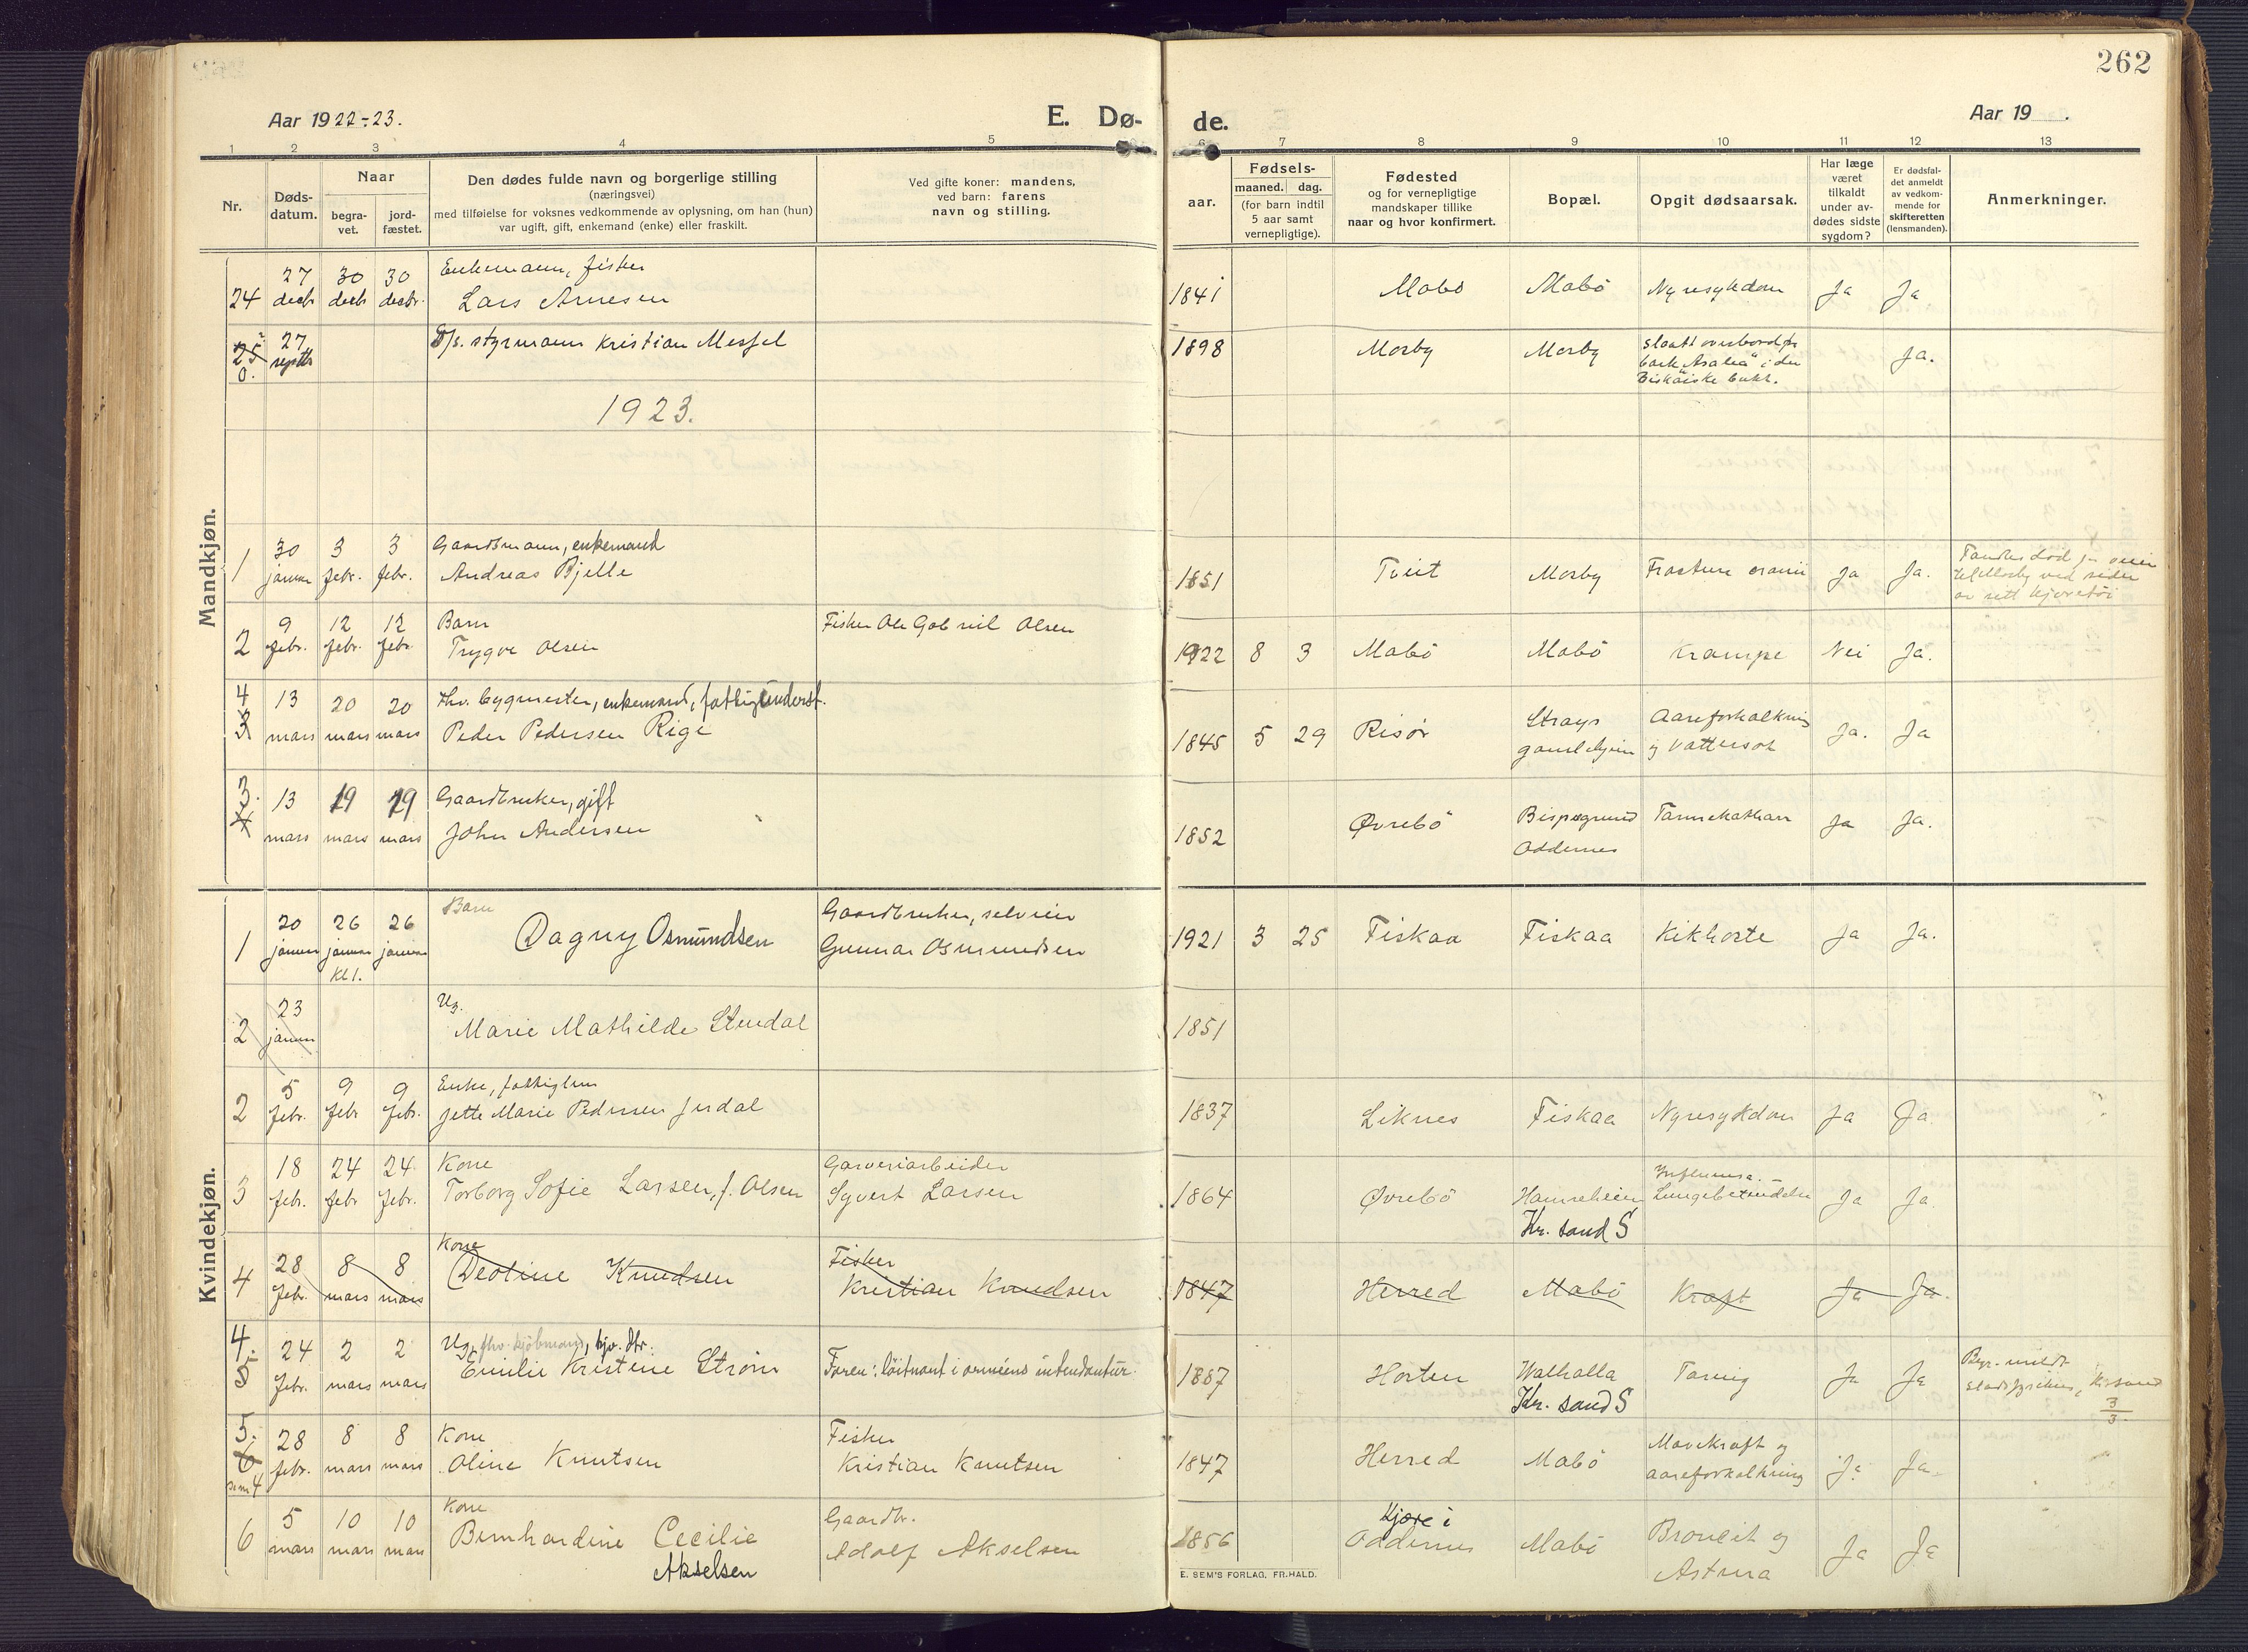 262
Aar 1922-23.
E. Dø-
de.
Aar 19 .
1 2 3 4 5 6 7 8 9 10 11 12 13
Nr.
Døds-
datum.
Naar
begra-
vet.
jord-
fæstet.
Den dødes fulde navn og borgerlige stilling
(næringsvei)
med tilføielse for voksnes vedkommende av oplysning, om han (hun)
var ugift, gift, enkemand (enke) eller fraskilt.
Ved gifte koner: mandens,
ved barn: farens
navn og stilling.
aar.
Fødsels-
maaned. dag.
(for barn indtil
5 aar samt
vernepligtige).
Fødested
og for vernepligtige
mandskaper tillike
naar og hvor konfirmert.
Bopæl.
Opgit dødsaarsak.
Har læge
været
tilkaldt
under av-
dødes sidste
sygdom?
Er dødsfal-
det anmeldt
av vedkom-
mende for
skifteretten
(lensmanden).
Anmerkninger.
Mandkjøn.
27 30 30 Enkemann, fisker
24 decbr decbr decbr. Lars Arnesen 1841 Mabø Mabö Nyresykdom Ja Ja
25 27 styrmann Kristian Messel 1898 Mosby Mosby slaatt overbord fra
0. septbr bark "Asalea" i den Ja.
Biskaiske bukt.
1923.
30 3 3 Gaardsmann, enkemand
1 januar febr. febr. Andreas Bjelle 1851 Tveit Mosby Fractura cranii Ja Ja.
Fandtes død paa veien
til Mosby ved siden
av sett kjøretøi
9 12 12 Barn Fisker Ole Gabriel Olsen
2 febr. febr. febr. Trygve Olsen 1922 8 3 Mabö Mabö Krampe Nei Ja.
4 13 20 20 fhv. bygmester, enkemand, fattigunderst.
3 mars mars mars Peder Pedersen Rige 1845 5 29 Risør Strays Aareforkalkning Ja. Ja
gamlehjem og Vattersot
3. 13 19 19 Gaardbruker, gift
4 mars mars mars John Andersen 1852 Øvrebö Bispegrund Tarmekatharr Ja Ja.
Oddernes
Kvindekjøn.
20 26 26 Barn Gaardbruker, selveier
1 januar januar januar Dagny Osmundsen Gunnar Osmundsen 1921 3 25 Fiskaa Fiskaa Kikhoste Ja Ja.
Kl 1.
23 Ug.
2 januar Marie Mathilde Stendal 1851
5 9 9 Enke, fattiglem
2 febr. febr febr. Jette Marie Pedersen Jerdal 1837 Liknes Fiskaa Nyresykdom Ja Ja
18 24 24 Kone Garveriarbeider Influensa. –
3 febr. febr febr. Torborg Sofie Larsen, f. Olsen Syvert Larsen 1864 Øvrebö Hamreheien Lungebetændelse Ja Ja
Kr. sand S
28 8 8 Kone Fisker
4 febr. mars mars Deotine Knudsen Kristian Knudsen 1847 Herred Mabö Kraft Ja Ja.
4. 24 2 2 Ug. fhv. kjöbmand, hjv. dtr.
5 febr. mars mars Emilie Kristene Strøm Faren: löitnant i arméens intendantur. 1887 Horten Walhalla Tæring Ja Ja
Kr. sand S
Begr. meldt
stadsfysikus, Kr.sand
3/3
5. 28 8 8 Kone Fisker
6 febr. mars mars Oline Knutsen Kristian Knutsen 1847 Herred Mabö Mavekraft og Ja Ja.
som 4 aareforkalkning
5 10 10 Kone Gaardbr. Kjære i
6 mars mars mars Bernhardine Cecilie Adolf Akselsen 1856 Oddernes Mabö Bronkit og Ja Ja
Akselsen Astma
E. SEM'S FORLAG, FR.HALD.